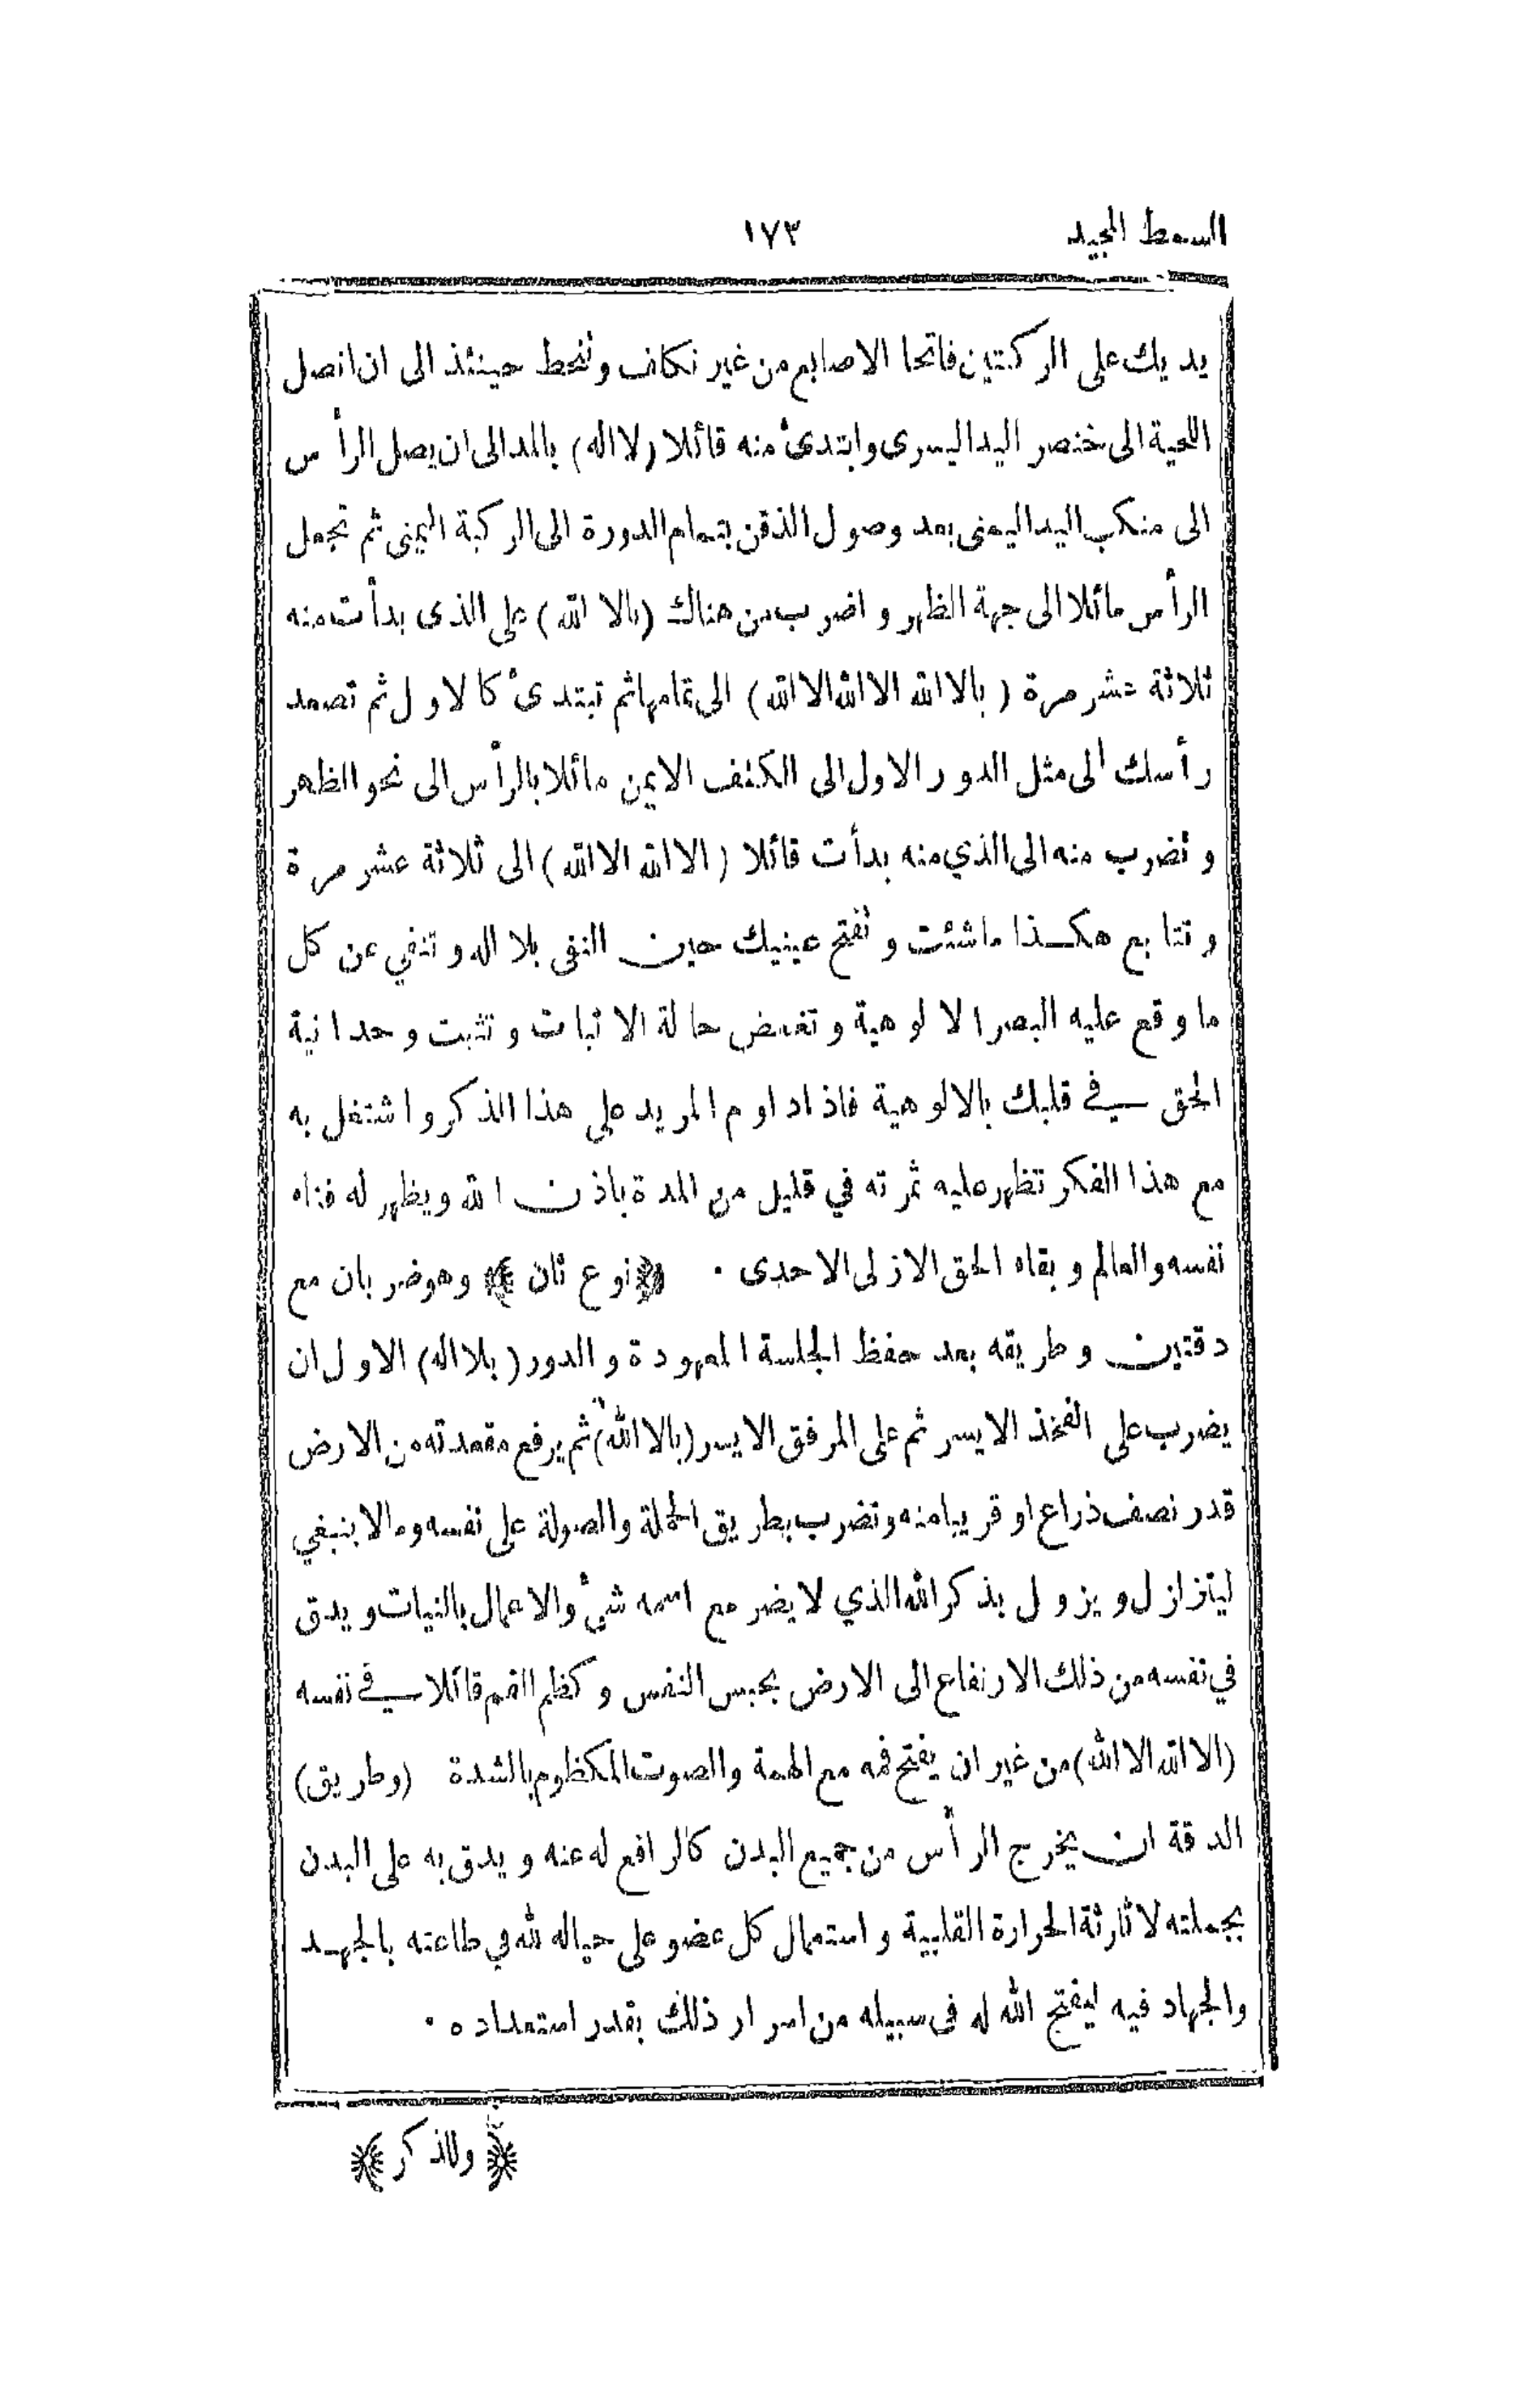 السمط المجيد ١٧٣
يديك على الركبتين فاتحا الاصابع من غير تكلف وتنحط حينئذ الى ان تصل
اللحية الى خنصر اليد اليسرى وابتدئ منه قائلا (لا اله) بالمد الى ان يصل الرأس
الى منكب اليد اليمنى بعد وصول الذقن بتمام الدورة الى الركبة اليمنى ثم تجعل
الرأس مائلا الى جهة الظهر واضرب من هناك (بالا الله) على الذى بدأت منه
ثلاثة عشر مرة (بالا الله الا الله الا الله) الى تمامها ثم تبتدئ كالاول ثم تصعد
رأسك الى مثل الدور الاول الى الكتف الايمن مائلا بالرأس الى نحو الظهر
وتضرب منه الى الذي منه بدأت قائلا (الا الله الا الله) الى ثلاثة عشر مرة
وتتابع هكذا ما شئت وتفتح عينيك حين النفى بلا اله وتنفي عن كل
ما وقع عليه البصر الالوهية وتغمض حالة الاثبات وتثبت وحدانية
الحق في قلبك بالالوهية فاذا داوم المريد على هذا الذكر واشتغل به
مع هذا الفكر تظهر عليه ثمرته في قليل من المدة باذن الله ويظهر له فناه
نفسه والعالم وبقاه الحق الازلى الاحدى ٠ ﴿نوع ثان﴾ وهو ضربان مع
دقتين وطريقه بعد حفظ الجلسة المعهودة والدور (بلا اله) الاول ان
يضرب على الفخذ الايسر ثم على المرفق الايسر (بالا الله) ثم يرفع مقعدته من الارض
قدر نصف ذراع او قريبا منه وتضرب بطريق الحملة والصولة على نفسه وما لا ينبغي
ليتزلزل ويزول بذكر الله الذي لا يضر مع اسمه شئ والاعمال بالنيات ويدق
في نفسه من ذلك الارتفاع الى الارض بحبس النفس وكظم الفم قائلا في نفسه
(الا الله الا الله) من غير ان يفتح فمه مع الهمة والصوت المكظوم بالشدة (وطريق)
الدقة ان يخرج الرأس من جميع البدن كالرافع له عنه ويدق به على البدن
بجملته لاثارثة الحرارة القلبية واستعمال كل عضو على حياله لله في طاعته بالجهد
والجهاد فيه ليفتح الله له فى سبيله من اسرار ذلك بقدر استعداده ٠
﴿وللذكر﴾